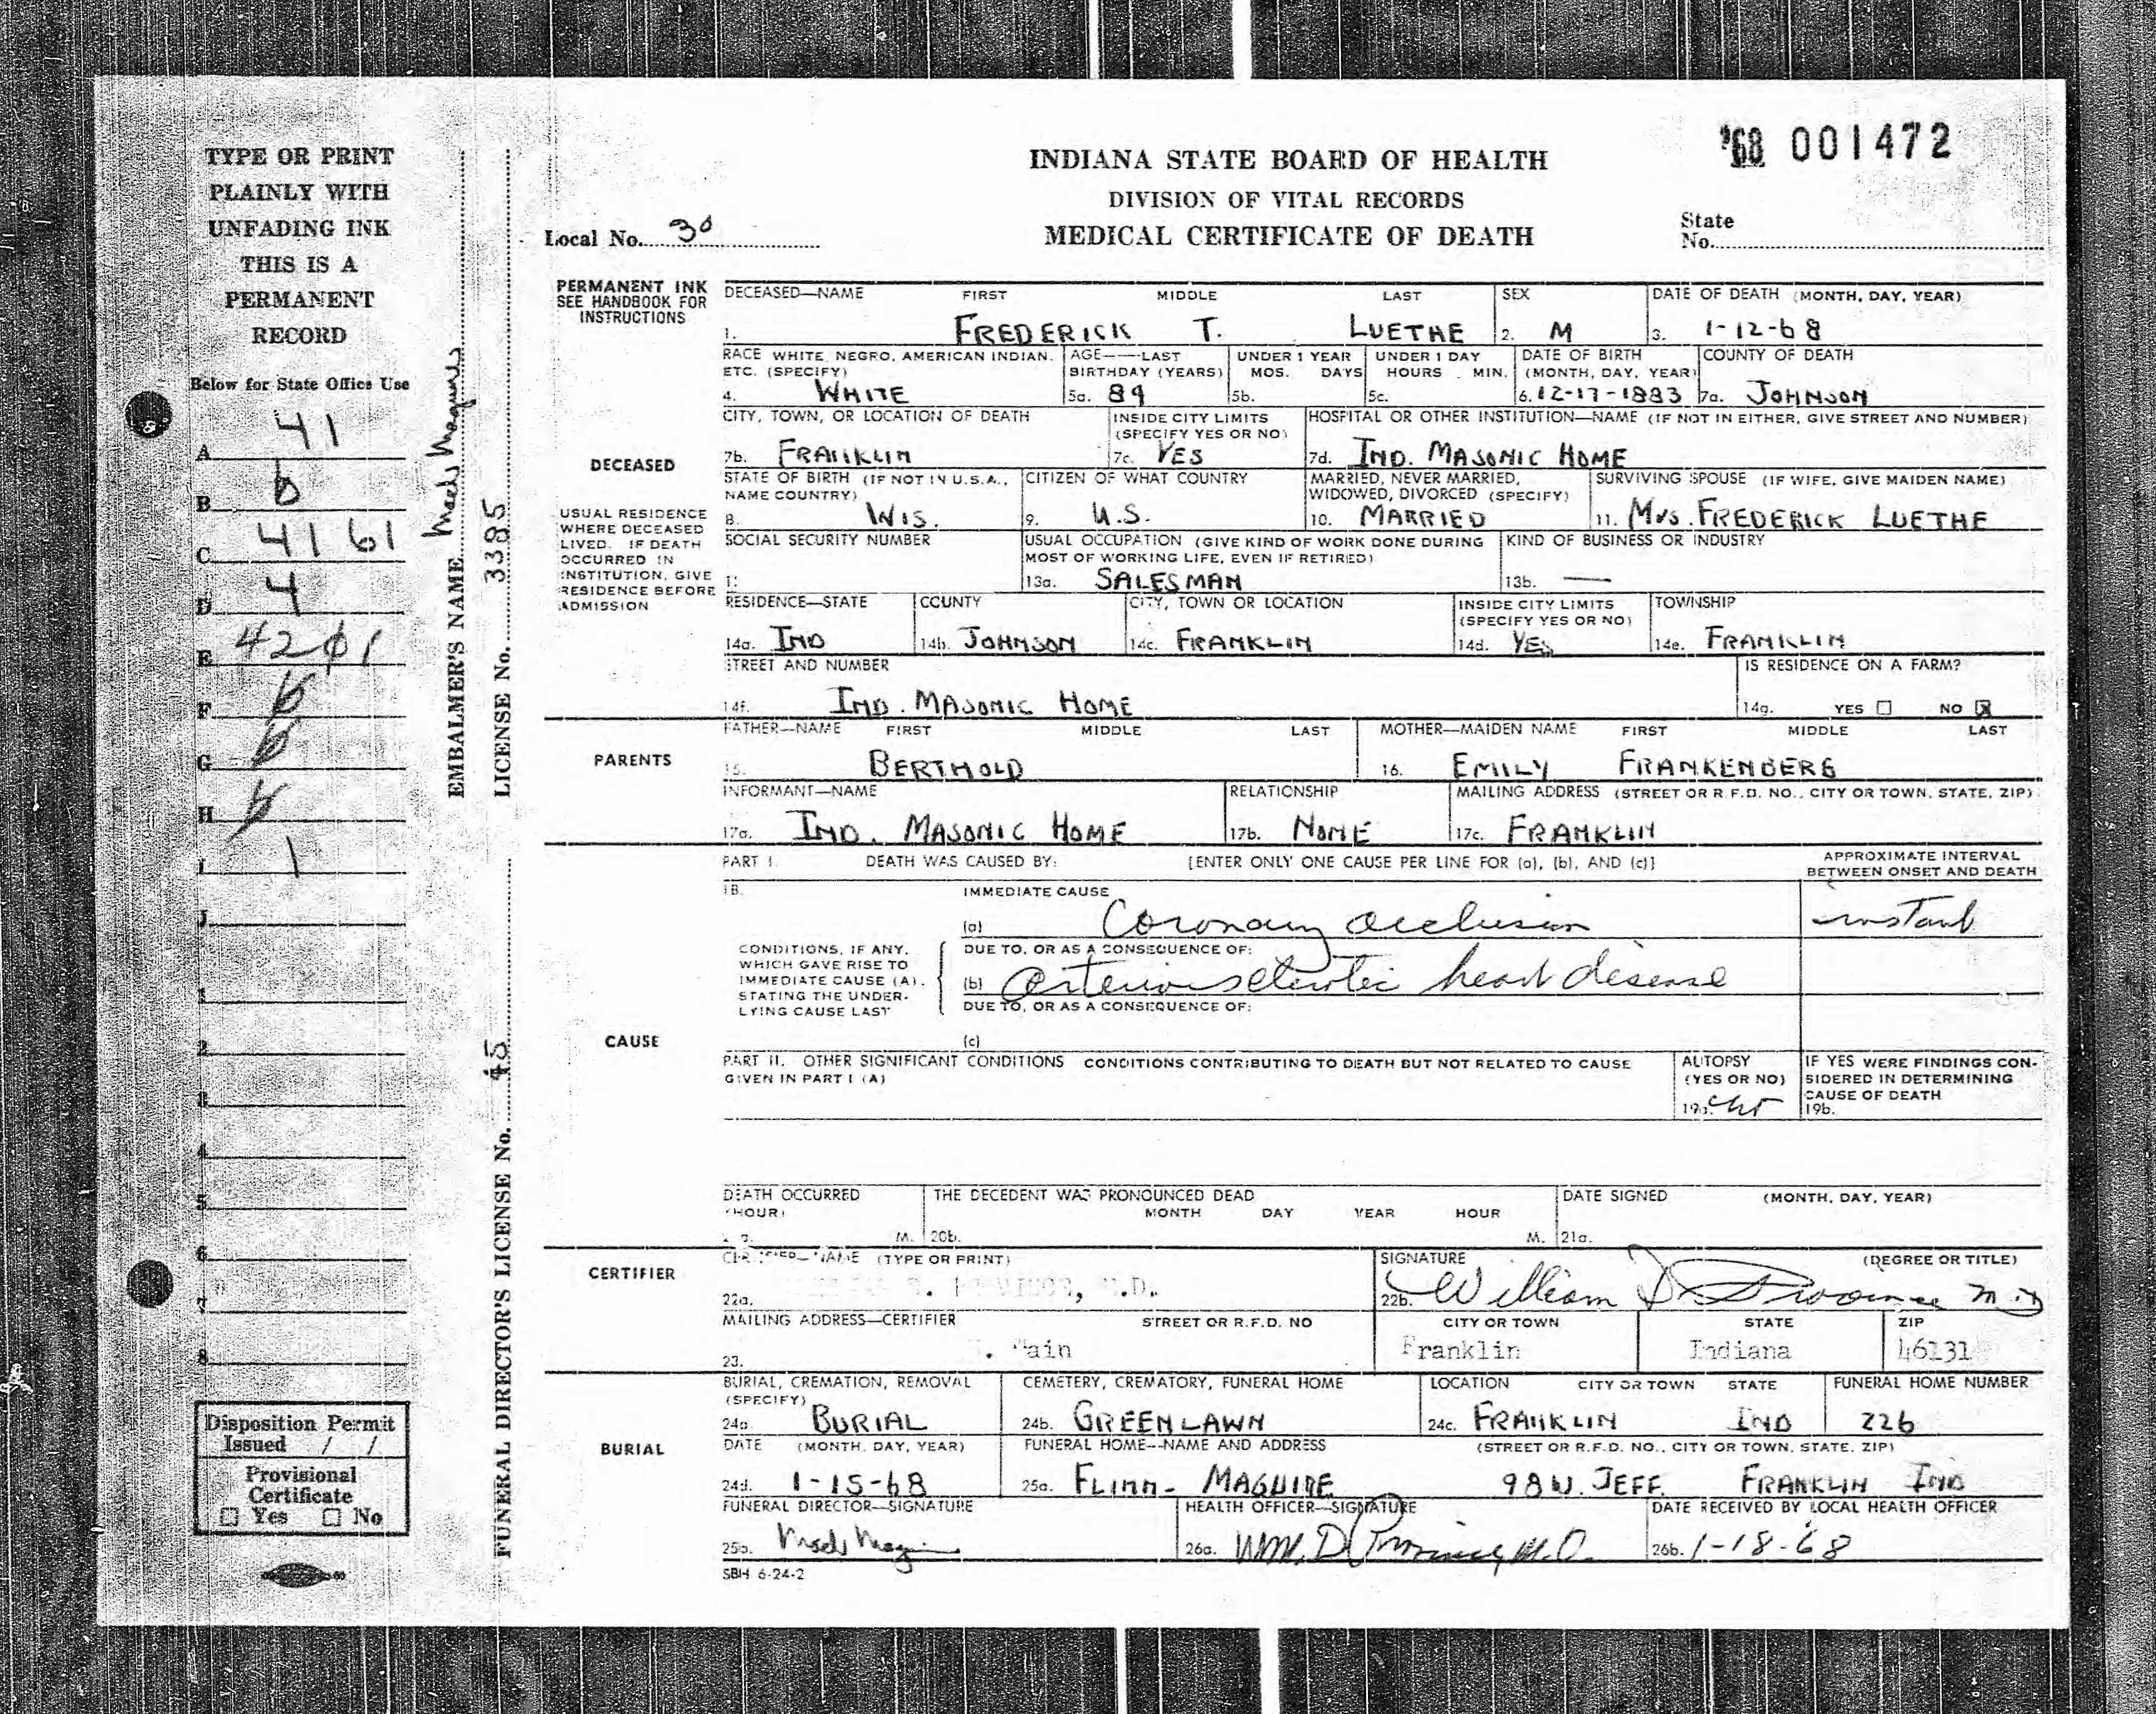 '68 001472
TYPE OR PRINT
PLAINLY WITH
UNFADING INK
THIS IS A
PERMANENT
RECORD
Below for State Office Use
A 41
B
C 4161
D 4
E 4201
F
G
H
I 1
J
1
2
3
4
5
6
7
8
Disposition Permit
Issued / /
Provisional
Certificate
☐ Yes ☐ No
EMBALMER'S NAME Maguire
LICENSE No. 3385
FUNERAL DIRECTOR'S LICENSE No. 45
INDIANA STATE BOARD OF HEALTH
DIVISION OF VITAL RECORDS
MEDICAL CERTIFICATE OF DEATH
Local No. 30
State
No.
PERMANENT INK
SEE HANDBOOK FOR
INSTRUCTIONS
DECEASED
USUAL RESIDENCE
WHERE DECEASED
LIVED. IF DEATH
OCCURRED IN
INSTITUTION, GIVE
RESIDENCE BEFORE
ADMISSION
DECEASED—NAME FIRST MIDDLE LAST SEX DATE OF DEATH (MONTH, DAY, YEAR)
1. FREDERICK T. LUETHE 2. M 3. 1-12-68
RACE WHITE, NEGRO, AMERICAN INDIAN, AGE—LAST UNDER 1 YEAR UNDER 1 DAY DATE OF BIRTH COUNTY OF DEATH
ETC. (SPECIFY) BIRTHDAY (YEARS) MOS. DAYS HOURS MIN. (MONTH, DAY, YEAR)
4. WHITE 5a. 89 5b. 5c. 6. 12-17-1883 7a. JOHNSON
CITY, TOWN, OR LOCATION OF DEATH INSIDE CITY LIMITS HOSPITAL OR OTHER INSTITUTION—NAME (IF NOT IN EITHER, GIVE STREET AND NUMBER)
(SPECIFY YES OR NO)
7b. FRANKLIN 7c. YES 7d. IND. MASONIC HOME
STATE OF BIRTH (IF NOT IN U.S.A., CITIZEN OF WHAT COUNTRY MARRIED, NEVER MARRIED, SURVIVING SPOUSE (IF WIFE, GIVE MAIDEN NAME)
NAME COUNTRY) WIDOWED, DIVORCED (SPECIFY)
8. WIS. 9. U.S. 10. MARRIED 11. Mrs. FREDERICK LUETHE
SOCIAL SECURITY NUMBER USUAL OCCUPATION (GIVE KIND OF WORK DONE DURING KIND OF BUSINESS OR INDUSTRY
MOST OF WORKING LIFE, EVEN IF RETIRED)
13a. SALESMAN 13b. —
RESIDENCE—STATE COUNTY CITY, TOWN OR LOCATION INSIDE CITY LIMITS TOWNSHIP
(SPECIFY YES OR NO)
14a. IND 14b. JOHNSON 14c. FRANKLIN 14d. YES 14e. FRANKLIN
STREET AND NUMBER IS RESIDENCE ON A FARM?
14f. IND. MASONIC HOME 14g. YES ☐ NO ☒
PARENTS
FATHER—NAME FIRST MIDDLE LAST MOTHER—MAIDEN NAME FIRST MIDDLE LAST
15. BERTHOLD 16. EMILY FRANKENBERG
INFORMANT—NAME RELATIONSHIP MAILING ADDRESS (STREET OR R.F.D. NO., CITY OR TOWN, STATE, ZIP)
17a. IND. MASONIC HOME 17b. NONE 17c. FRANKLIN
CAUSE
PART I. DEATH WAS CAUSED BY: [ENTER ONLY ONE CAUSE PER LINE FOR (a), (b), AND (c)] APPROXIMATE INTERVAL
BETWEEN ONSET AND DEATH
18. IMMEDIATE CAUSE
(a) Coronary occlusion instant
CONDITIONS, IF ANY,
WHICH GAVE RISE TO
IMMEDIATE CAUSE (A),
STATING THE UNDER-
LYING CAUSE LAST
DUE TO, OR AS A CONSEQUENCE OF:
(b) arteriosclerotic heart disease
DUE TO, OR AS A CONSEQUENCE OF:
(c)
PART II. OTHER SIGNIFICANT CONDITIONS CONDITIONS CONTRIBUTING TO DEATH BUT NOT RELATED TO CAUSE
GIVEN IN PART I (A)
AUTOPSY
(YES OR NO)
19a.
IF YES WERE FINDINGS CON-
SIDERED IN DETERMINING
CAUSE OF DEATH
19b.
DEATH OCCURRED THE DECEDENT WAS PRONOUNCED DEAD DATE SIGNED (MONTH, DAY, YEAR)
(HOUR) MONTH DAY YEAR HOUR
M. 20b. M. 21a.
CERTIFIER
CERTIFIER—NAME (TYPE OR PRINT) SIGNATURE (DEGREE OR TITLE)
22a. M.D. 22b. William D. Province M.D.
MAILING ADDRESS—CERTIFIER STREET OR R.F.D. NO CITY OR TOWN STATE ZIP
23. Main Franklin Indiana 46131
BURIAL
BURIAL, CREMATION, REMOVAL CEMETERY, CREMATORY, FUNERAL HOME LOCATION CITY OR TOWN STATE FUNERAL HOME NUMBER
(SPECIFY)
24a. BURIAL 24b. GREENLAWN 24c. FRANKLIN IND 226
DATE (MONTH, DAY, YEAR) FUNERAL HOME--NAME AND ADDRESS (STREET OR R.F.D. NO., CITY OR TOWN, STATE, ZIP)
24d. 1-15-68 25a. FLINN- MAGUIRE 98 W. JEFF. FRANKLIN IND
FUNERAL DIRECTOR—SIGNATURE HEALTH OFFICER—SIGNATURE DATE RECEIVED BY LOCAL HEALTH OFFICER
25b. 26a. WM. D. Province M.D. 26b. 1-18-68
SBH 6-24-2